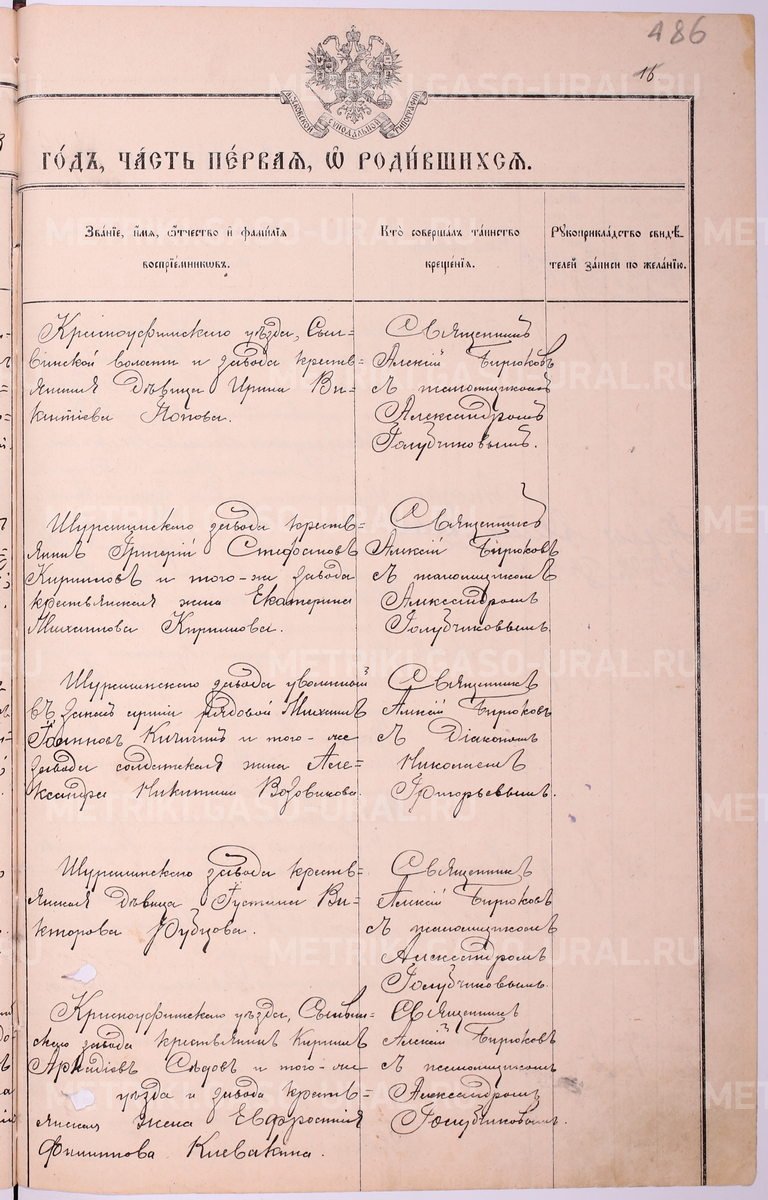 486
15
МОСКОВСКОЙ СИНОДАЛЬНОЙ ТИПОГРАФІИ
METRIKI.GASO-URAL.RU
го́дъ, ча́сть пе́рваѧ, ѡ҆ роди́вшихсѧ.
Зва́нїе, и҆́мѧ, ѻ҆́тчество и҆ фами́лїѧ
воспрїе́мникѡвъ.
Кто̀ соверша́лъ та́инство
креще́нїѧ.
Рꙋкоприкла́дство свидѣ́-
телей за́писи по жела́нїю.
Красноуфимскаго уѣзда, Сыл-
винской волости и завода кресть-
янская дѣвица Ирина Ви-
кентіева Попова.
Священникъ
Алексій Бирюковъ
съ псаломщикомъ
Александромъ
Голубчиковымъ.
Шуралинскаго завода кресть=
янинъ Григорій Стефановъ
Кирилловъ и того-же завода
крестьянская жена Екатерина
Михаилова Кириллова.
Священникъ
Алексій Бирюковъ
съ псаломщикомъ
Александромъ
Голубчиковымъ.
Шуралинскаго завода уволенный
въ запасъ арміи рядовой Михаилъ
Іоанновъ Кичигинъ и того-же
завода солдатская жена Але-
ксандра Никитина Возовикова.
Священникъ
Алексій Бирюковъ
съ Діакономъ
Николаемъ
Григорьевымъ.
Шуралинскаго завода кресть=
янская дѣвица Іустина Ви-
кторова Рубцова.
Священникъ
Алексій Бирюковъ
съ псаломщикомъ
Александромъ
Голубчиковымъ.
Красноуфимскаго уѣзда, Сылвин-
скаго завода крестьянинъ Кириллъ
Аркадіевъ Сѣдовъ и того-же
уѣзда и завода кресть=
янская жена Евфросинія
Филиппова Клевакина.
Священникъ
Алексій Бирюковъ
съ псаломщикомъ
Александромъ
Голубчиковымъ.